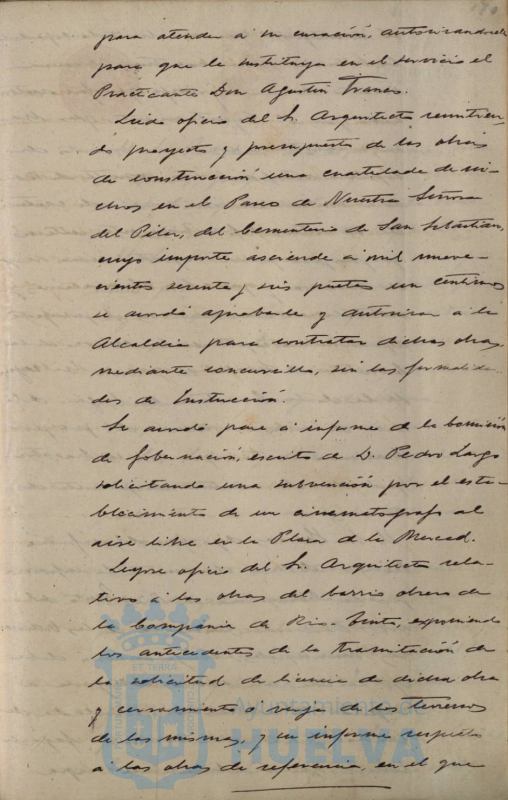 para atender á su curación, autorizandole
para que le sustituya en el servicio el
Practicante Don Agustin
Leido oficio del Sr. Arquitecto remitien-
do proyecto y presupuesto de las obras
de construcción una cuartelada de ni-
chos en el Paseo de Nuestra Señora
del Pilar, del Cementerio de San Sebastian,
cuyo importe asciende á mil nueve-
cientos sesenta y seis pesetas un centimo
se acordó aprobarlo y autorizar a la
Alcaldia para contratar dichas obras
mediante concursillo, sin las formalida-
des de Instrucción.
Se acordó pase á informe de la Comisión
de Gobernación, escrito de D. Pedro Largo
solicitando una subvención por el esta-
blecimiento de un cinematografo al
aire libre en la Plaza de la Merced.
Leyose oficio del Sr. Arquitecto rela-
tivo á las obras del barrio obrero de
la Compañia de Rio-Tinto, exponiendo
los antecedentes de la tramitación de
la solicitud de licencia de dicha obra
y cerramiento ó verja de los terrenos
de las mismas, y su informe respecto
á las obras de referencia, en el que
Ayuntamiento de
HUELVA